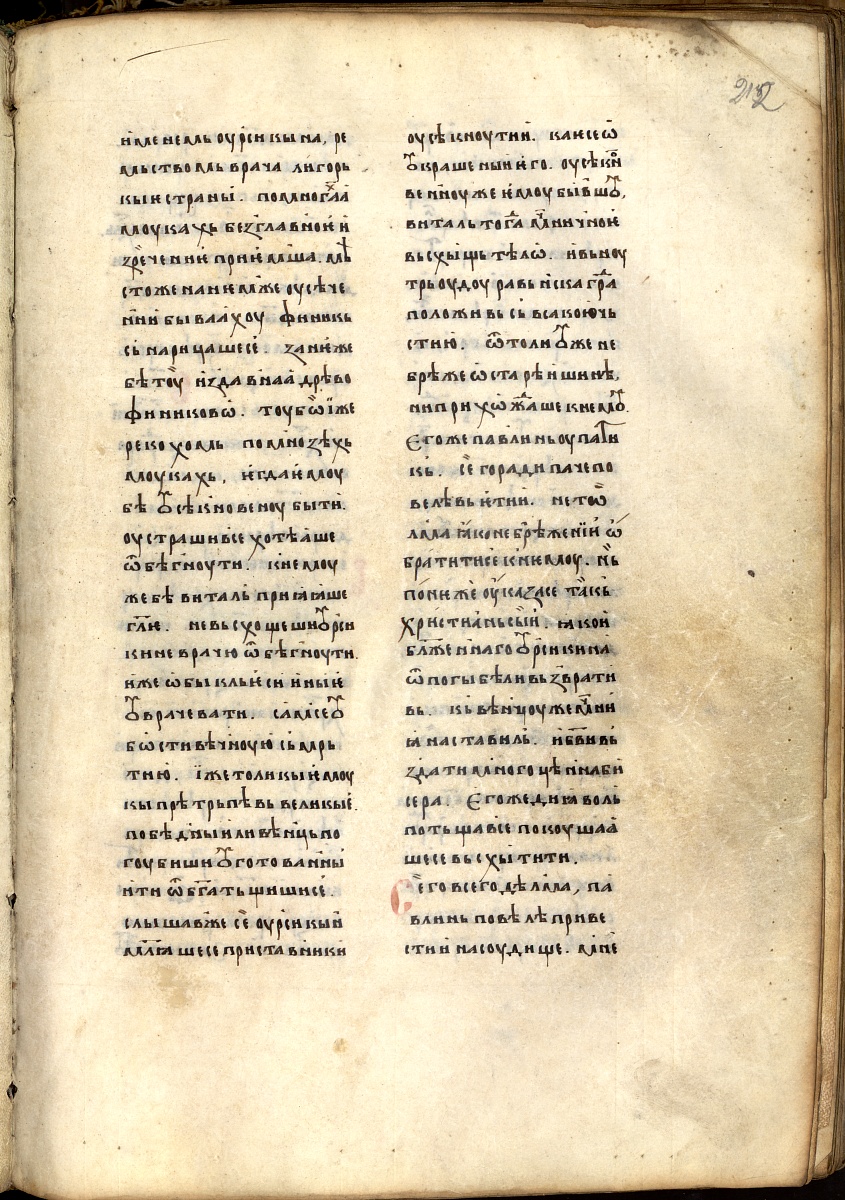 212
именемь оурсикына, ре
мьствомь врача лигорь
кые страны. помноꙁѣⷯ
моукахь беꙁглавное и
ꙁречение приемша. мѣ
стоже на немже оусѣче
нии бываахоу финикь
сь нарицашесе. ꙁаниеже
бѣ тоу иꙁдавнаа дрѣво
финиково. тоу бѡ їже
рекохомь помноꙁѣхь
моукахь, иегда иемоу
бѣ ꙋсѣкновеноу быти.
оустрашивсе хотѣаше
ѿбѣгноути. кнемоу
же бѣ виталь приꙗꙗше
гл҃ю. невьсхощеши ꙋрси
кине врачю ѿбѣгноути.
иже ѡбыкль еси иные
ꙋврачевати. самсе ꙋ
бѡсти вѣчною сьмрь
тию. їже толикые моу
кы прѣтрьпѣвь великые.
побѣдныи ли вѣньць по
гоубиши ꙋготованныи
ити ѿ бг҃атьщишисе.
слышавже се оурсикыи
мл҃ꙗшесе приставники
оусѣкноутии. какосе ѡ
ꙋкрашеныи его. оусѣкⷩ
венноуже емоу бывшꙋ,
виталь тогⷣа мⷱ҃ничное
вьсхыщь тѣлѡ. ивьноу
трьоудоу равьнска граⷣа
положивь сь всакою чь
стию. ѿтоли ꙋже не
брѣже ѡ старѣишинѣ,
ни прихѡжⷣаше кнемꙋ.
Егоже павлинь оупати
кь. сего ради паче по
велѣвь ети. не тѡ
лма ꙗко небрѣжении ѡ
братитисе кнемоу. нь
понеже оуказасе такь
христианьскыи. ꙗкои
бл҃женнаго ꙋрсикина
ѿ погыбѣли вьꙁврати
вь. кь вѣнцоуже мⷱ҃ни
ꙗ наставиль. и бв҃и вь
ꙁдати многоцѣннаби
сера. Егоже диꙗволь
потьщавсе покоушаа
шесе вьсхытити.
Сего всего дѣлма, па
влинь повелѣ приве
стии на соудище. мне